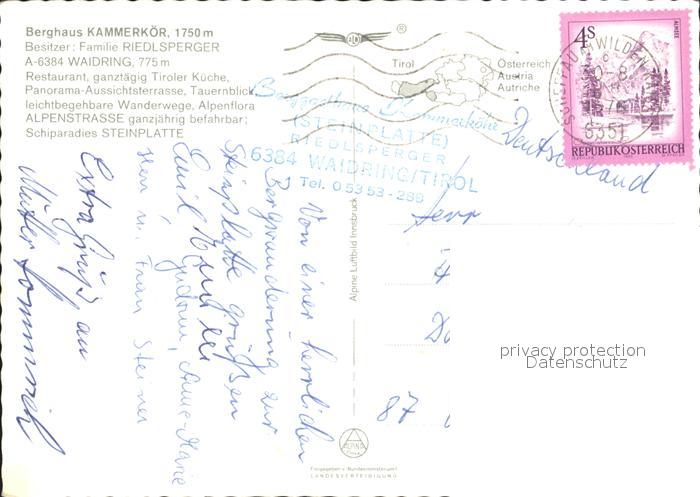 Berghaus KAMMERKÖR, 1750 m
Besitzer: Familie RIEDLSPERGER
A-6384 WAIDRING, 775 m
Restaurant, ganztägig Tiroler Küche,
Panorama-Aussichtsterrasse, Tauernblick,
leichtbegehbare Wanderwege, Alpenflora
ALPENSTRASSE ganzjährig befahrbar;
Schiparadies STEINPLATTE
®
Tirol
Österreich
Austria
Autriche
4S
ALMSEE
REPUBLIK ÖSTERREICH
SCHEFFAU AM WILDEN KAISER
6351
Berggasthaus Kammerköhr
(STEINPLATTE)
RIEDLSPERGER
6384 WAIDRING/TIROL
Tel. 05353-289
Deutschland
Herr
87
Von einer herrlichen
Bergwanderung zur
Steinplatte grüßen
Emil
Anne-Marie
Herr u. Frau Steiner
Extra Grüß an
Mutter
Alpine Luftbild Innsbruck
ALPINE
Freigegeben v. Bundesministerium f.
LANDESVERTEIDIGUNG
privacy protection
Datenschutz